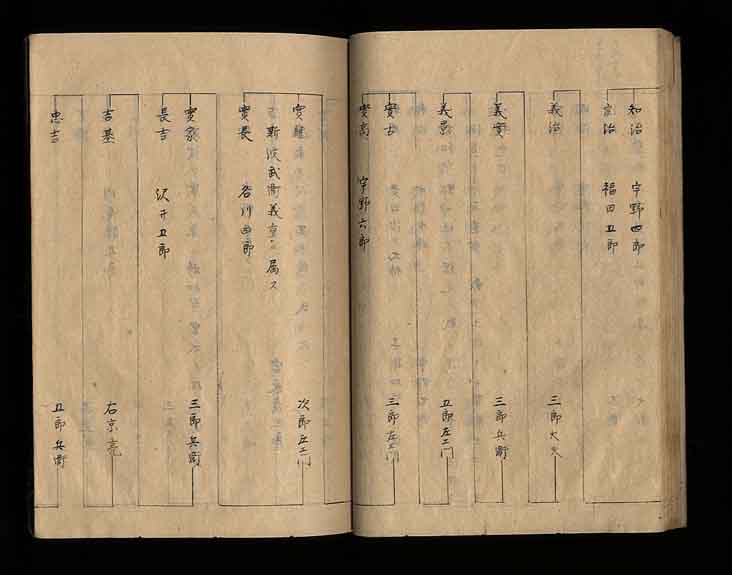 知治 宇野四郎
宣治 福田五郎
義治 三郎大夫
義実 三郎兵衛
義忠 五郎左エ門
実吉 三郎左エ門
実高 宇野六郎
実継 次郎左エ門
斯波武衛義重ニ属ス
実長 谷川四郎
実家 三郎兵衛
長吉 沢井五郎
吉基 右京亮
忠吉 五郎兵衛